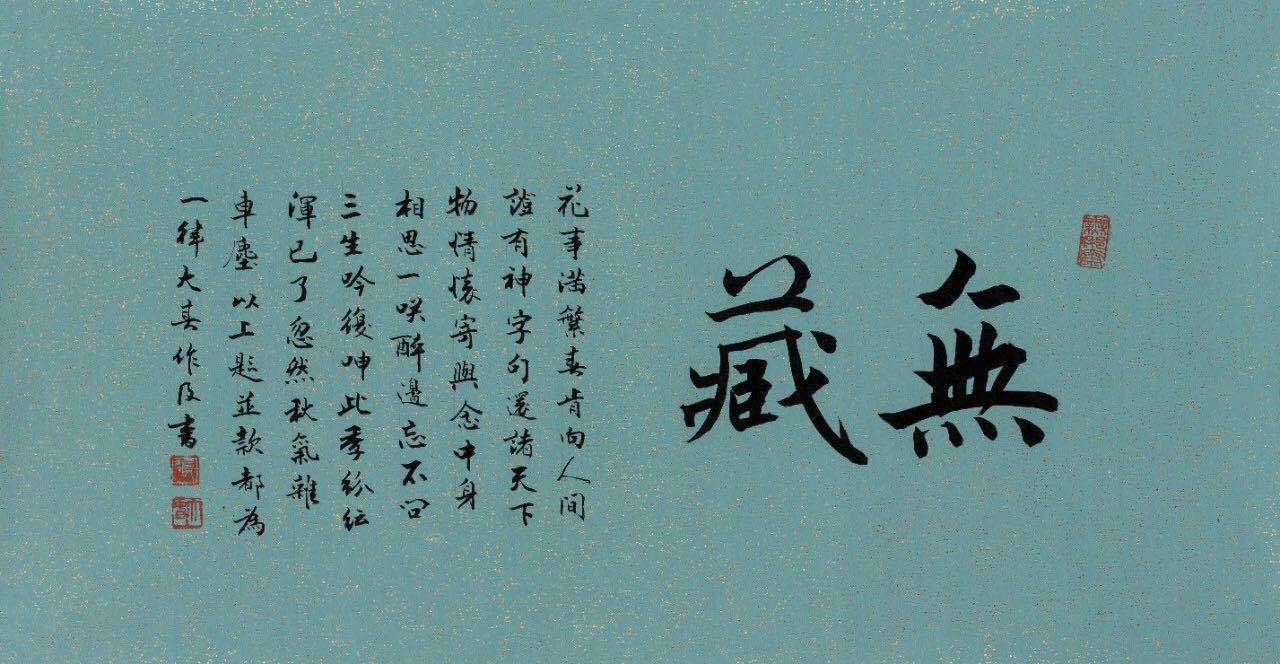 無藏
花事滿繁春肯向人間
證有神字句還諸天下
物情懷寄與念中身
相思一咲醉邊忘不問
三生吟復呻此季紛紜
渾已了忽然秋氣雜
車塵以上題並款都為
一律大春作及書